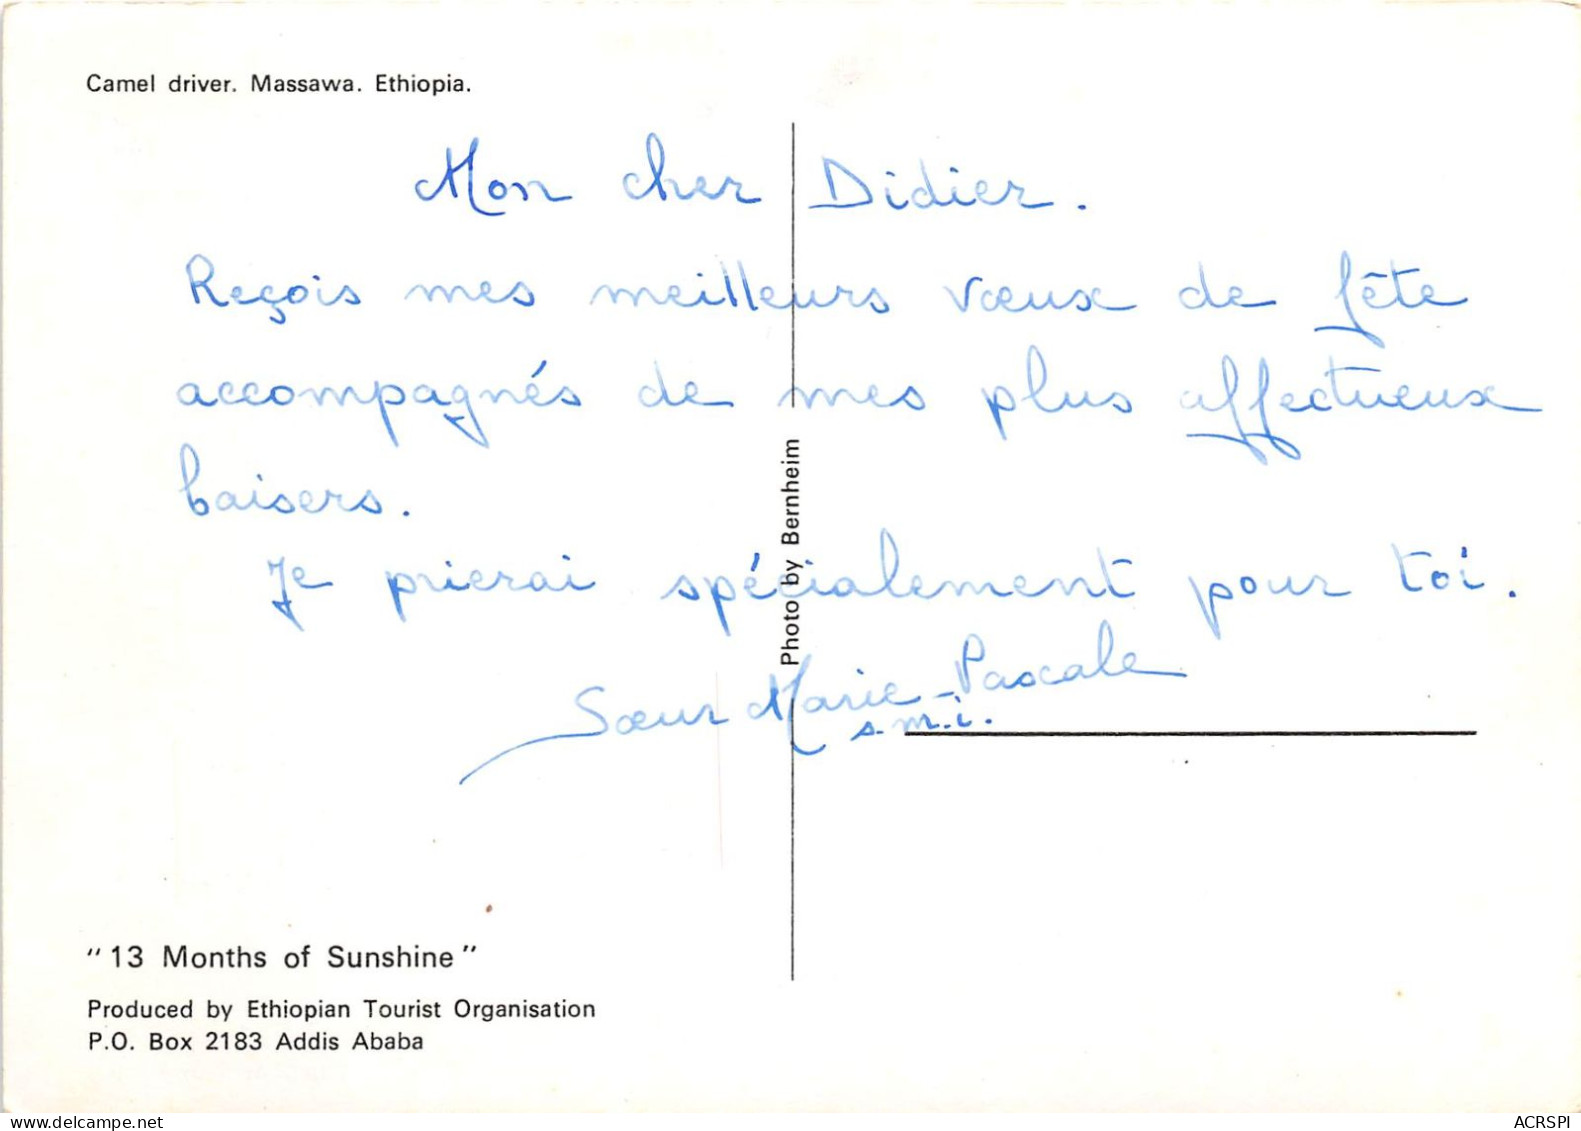 Camel driver. Massawa. Ethiopia.
Mon cher Didier.
Reçois mes meilleurs vœux de fête
accompagnés de mes plus affectueux
baisers.
Je prierai spécialement pour toi.
Sœur Marie-Pascale
s.m.i.
Photo by Bernheim
"13 Months of Sunshine"
Produced by Ethiopian Tourist Organisation
P.O. Box 2183 Addis Ababa
ACRSPI